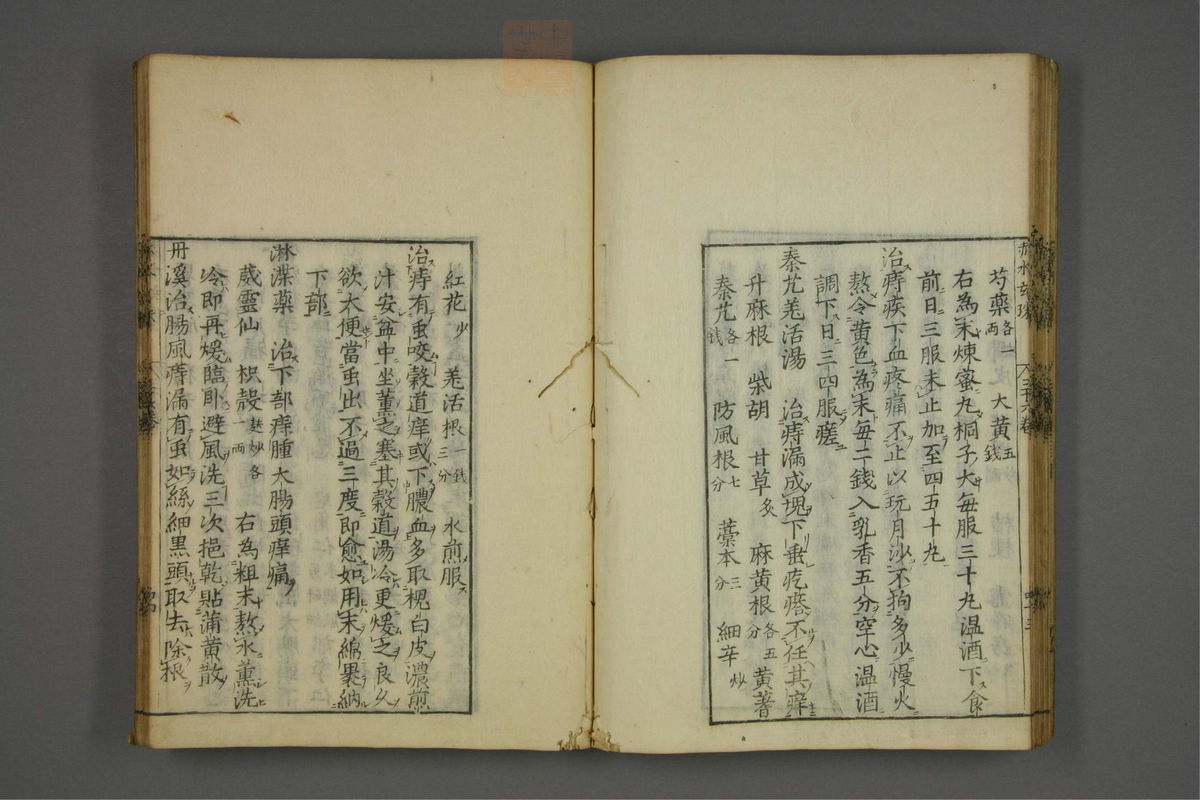 芍藥各一兩 大黃五錢
右為末煉蜜丸桐子大每服三十九温酒下食
前日三服未止加至四五十九
治痔疾下血疼痛不止以玩月沙不拘多少慢火
熬令黃色為末每二錢入乳香五分空心温酒
調下日三四服瘥
秦艽羗活湯 治痔漏成塊下垂疙瘩不任其痒
升麻根 柴胡 甘草炙 麻黃根各五分 黃蓍
秦艽各一錢 防風根七分 藁本三分 細辛炒
紅花少 羗活根一錢三分 水煎服
治痔有虫咬穀道痒或下膿血多取槐白皮濃煎
汁安盆中坐薰之塞其穀道湯冷更煖之良久
欲大便當虫出不過三度即愈如用末綿裹納
下部
淋渫藥 治下部痒腫大腸頭痒痛
葳靈仙 枳殼麩炒各一兩 右為粗末熬水薰洗
冷即再煖臨卧避風洗三次挹乾貼蒲黃散
丹溪治腸風痔漏有虫如絲細黑頭取去除根